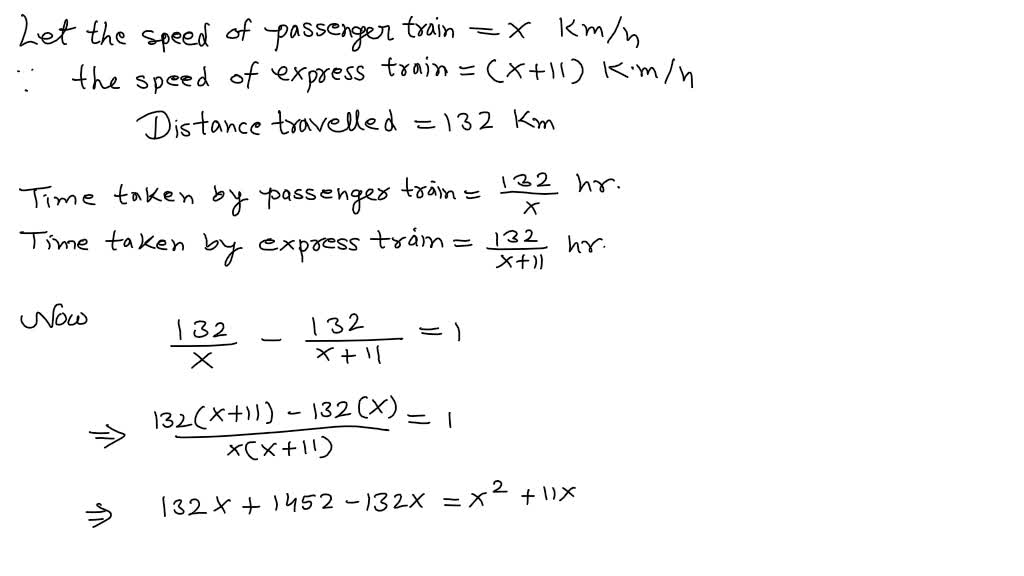 Let the speed of passenger train = x Km/h
∵ the speed of express train = (x+11) K.m/h
Distance travelled = 132 Km
Time taken by passenger train = 132/x hr.
Time taken by express train = 132/(x+11) hr.
Now 132/x - 132/(x+11) = 1
⇒ (132(x+11) - 132(x))/(x(x+11)) = 1
⇒ 132x + 1452 - 132x = x² + 11x